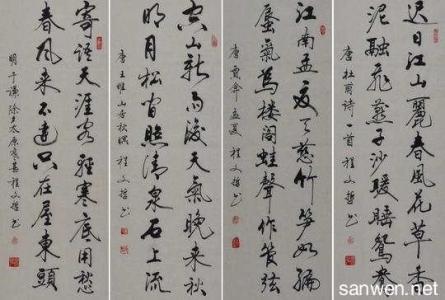 迟日江山麗春風花草香
泥融飛燕子沙暖睡鴛鴦
唐杜甫詩一首 程文哲书
江南孟夏天慈竹笋如編
蜃氣為樓閣蛙聲作管弦
唐賈弇孟夏 程文哲书
空山新雨後天氣晚来秋
明月松间照清泉石上流
唐王維山居秋暝 程文哲书
寄语天涯客輕寒底用愁
春風来不遠只在屋東頭
明于謙除夕太原寒甚程文哲书
sanwen.net